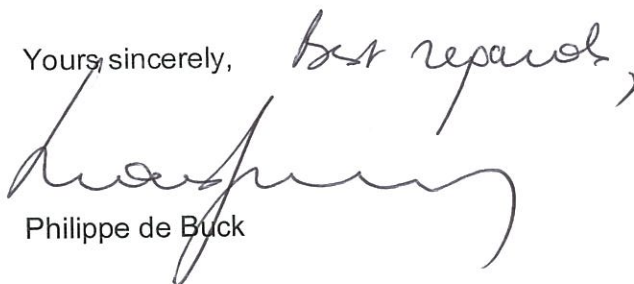 Yours sincerely, Best regards,
Philippe de Buck